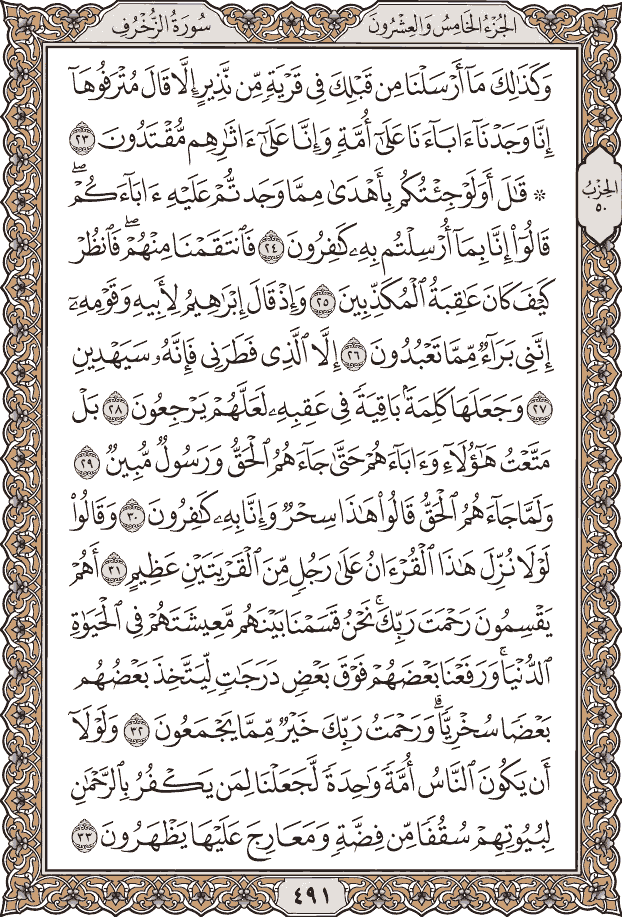 سُورَةُ الزُّخْرُفِ
الجُزْءُ الخَامِسُ وَالعِشْرُونَ
وَكَذَٰلِكَ مَآ أَرْسَلْنَا مِن قَبْلِكَ فِي قَرْيَةٍ مِّن نَّذِيرٍ إِلَّا قَالَ مُتْرَفُوهَآ
إِنَّا وَجَدْنَآ ءَابَآءَنَا عَلَىٰٓ أُمَّةٍ وَإِنَّا عَلَىٰٓ ءَاثَٰرِهِم مُّقْتَدُونَ ٢٣
۞ قَٰلَ أَوَلَوْ جِئْتُكُم بِأَهْدَىٰ مِمَّا وَجَدتُّمْ عَلَيْهِ ءَابَآءَكُمْۖ
قَالُوٓاْ إِنَّا بِمَآ أُرْسِلْتُم بِهِۦ كَٰفِرُونَ ٢٤ فَٱنتَقَمْنَا مِنْهُمْۖ فَٱنظُرْ
كَيْفَ كَانَ عَٰقِبَةُ ٱلْمُكَذِّبِينَ ٢٥ وَإِذْ قَالَ إِبْرَٰهِيمُ لِأَبِيهِ وَقَوْمِهِۦٓ
إِنَّنِي بَرَآءٌ مِّمَّا تَعْبُدُونَ ٢٦ إِلَّا ٱلَّذِي فَطَرَنِي فَإِنَّهُۥ سَيَهْدِينِ
٢٧ وَجَعَلَهَا كَلِمَةًۢ بَاقِيَةً فِي عَقِبِهِۦ لَعَلَّهُمْ يَرْجِعُونَ ٢٨ بَلْ
مَتَّعْتُ هَٰٓؤُلَآءِ وَءَابَآءَهُمْ حَتَّىٰ جَآءَهُمُ ٱلْحَقُّ وَرَسُولٌ مُّبِينٌ ٢٩
وَلَمَّا جَآءَهُمُ ٱلْحَقُّ قَالُواْ هَٰذَا سِحْرٌ وَإِنَّا بِهِۦ كَٰفِرُونَ ٣٠ وَقَالُواْ
لَوْلَا نُزِّلَ هَٰذَا ٱلْقُرْءَانُ عَلَىٰ رَجُلٍ مِّنَ ٱلْقَرْيَتَيْنِ عَظِيمٍ ٣١ أَهُمْ
يَقْسِمُونَ رَحْمَتَ رَبِّكَۚ نَحْنُ قَسَمْنَا بَيْنَهُم مَّعِيشَتَهُمْ فِي ٱلْحَيَوٰةِ
ٱلدُّنْيَاۚ وَرَفَعْنَا بَعْضَهُمْ فَوْقَ بَعْضٍ دَرَجَٰتٍ لِّيَتَّخِذَ بَعْضُهُم
بَعْضًا سُخْرِيًّاۗ وَرَحْمَتُ رَبِّكَ خَيْرٌ مِّمَّا يَجْمَعُونَ ٣٢ وَلَوْلَآ
أَن يَكُونَ ٱلنَّاسُ أُمَّةً وَٰحِدَةً لَّجَعَلْنَا لِمَن يَكْفُرُ بِٱلرَّحْمَٰنِ
لِبُيُوتِهِمْ سُقُفًا مِّن فِضَّةٍ وَمَعَارِجَ عَلَيْهَا يَظْهَرُونَ ٣٣
الحِزْبُ
٥٠
٤٩١